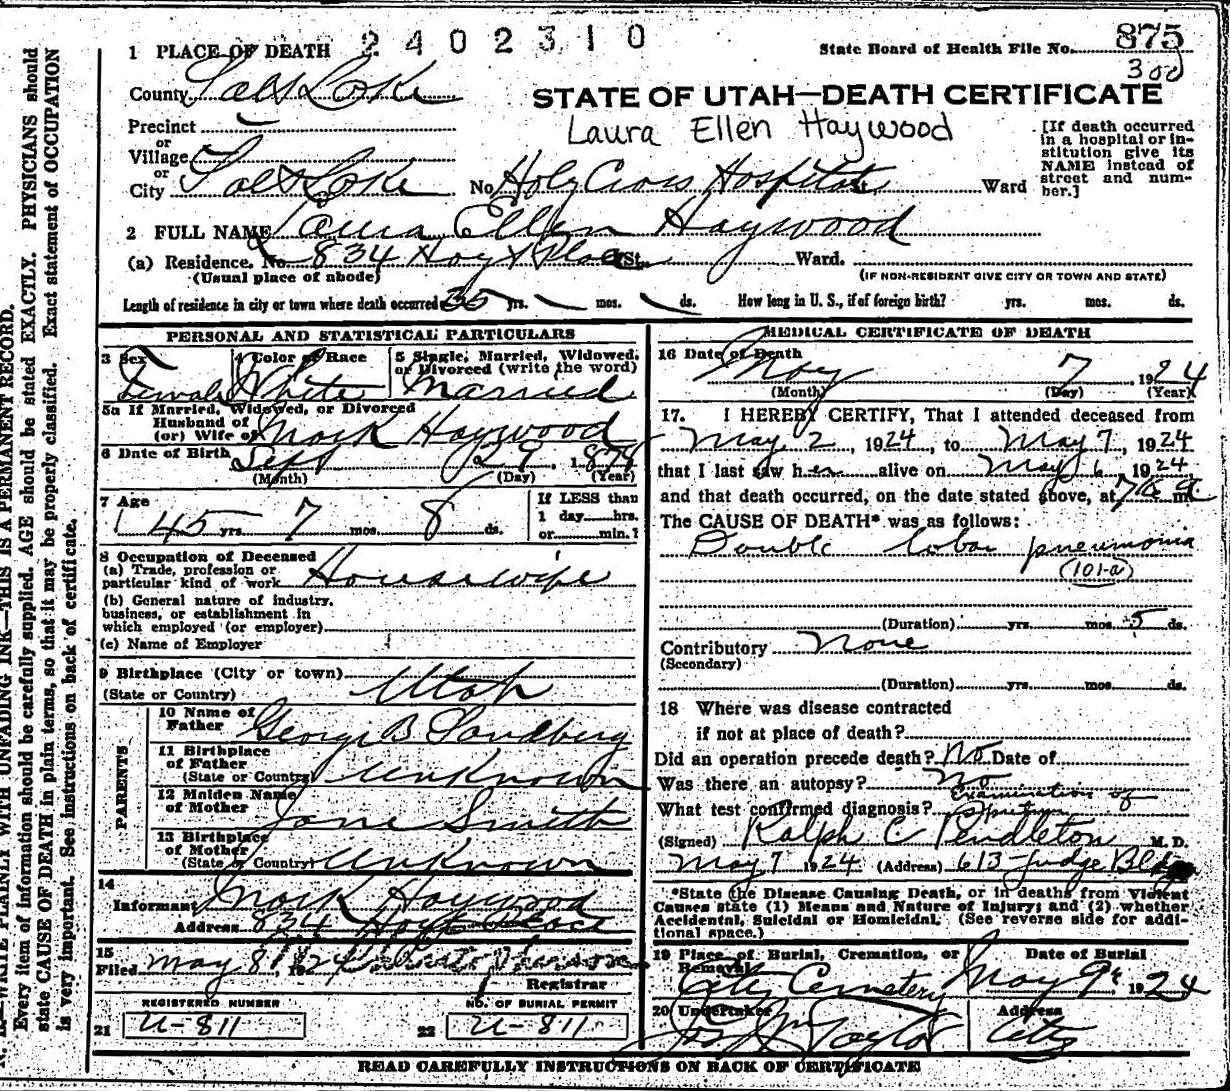 2402310
1 PLACE OF DEATH
State Board of Health File No. 875
300
County Salt Lake
STATE OF UTAH—DEATH CERTIFICATE
Precinct
Laura Ellen Haywood
[If death occurred in a hospital or institution give its NAME instead of street and number.]
or
Village
or
City Salt Lake No Holy Cross Hospital Ward
2 FULL NAME Laura Ellen Haywood
(a) Residence. No. 834 Hoyt Place St. Ward.
(Usual place of abode) (IF NON-RESIDENT GIVE CITY OR TOWN AND STATE)
Length of residence in city or town where death occurred 35 yrs. mos. ds. How long in U. S., if of foreign birth? yrs. mos. ds.
PERSONAL AND STATISTICAL PARTICULARS
3 Sex 4 Color or Race 5 Single, Married, Widowed, or Divorced (write the word)
Female White Married
5a If Married, Widowed, or Divorced
Husband of
(or) Wife of Mark Haywood
6 Date of Birth Sept 29, 1878
(Month) (Day) (Year)
7 Age If LESS than
45 yrs. 7 mos. 8 ds. 1 day hrs.
or min.?
8 Occupation of Deceased
(a) Trade, profession or
particular kind of work Housewife
(b) General nature of industry,
business, or establishment in
which employed (or employer)
(c) Name of Employer
9 Birthplace (City or town)
(State or Country) Utah
PARENTS
10 Name of
Father George B Sandberg
11 Birthplace
of Father
(State or Country) Unknown
12 Maiden Name
of Mother Jane Smith
13 Birthplace
of Mother
(State or Country) Unknown
14
Informant Mark Haywood
Address 834 Hoyt Place
15
Filed May 8, 1924
Registrar
REGISTERED NUMBER NO. OF BURIAL PERMIT
21 U-811 22 U-811
MEDICAL CERTIFICATE OF DEATH
16 Date of Death
May 7, 1924
(Month) (Day) (Year)
17. I HEREBY CERTIFY, That I attended deceased from
May 2, 1924, to May 7, 1924
that I last saw her alive on May 6, 1924
and that death occurred, on the date stated above, at 7 a m
The CAUSE OF DEATH* was as follows:
Double lobar pneumonia
(101-a)
(Duration) yrs. mos. 5 ds.
Contributory None
(Secondary)
(Duration) yrs. mos. ds.
18 Where was disease contracted
if not at place of death?
Did an operation precede death? No Date of
Was there an autopsy? No
Examination of
What test confirmed diagnosis? Sputum
(Signed) Ralph C Pendleton M. D.
May 7 1924 (Address) 613 Judge Bldg
*State the Disease Causing Death, or in deaths from Violent
Causes state (1) Means and Nature of Injury; and (2) whether
Accidental, Suicidal or Homicidal. (See reverse side for addi-
tional space.)
19 Place of Burial, Cremation, or Date of Burial
Removal
City Cemetery May 9, 1924
20 Undertaker Address
Jos Wm Taylor City
READ CAREFULLY INSTRUCTIONS ON BACK OF CERTIFICATE
WRITE PLAINLY WITH UNFADING INK—THIS IS A PERMANENT RECORD.
Every item of information should be carefully supplied. AGE should be stated EXACTLY. PHYSICIANS should
state CAUSE OF DEATH in plain terms, so that it may be properly classified. Exact statement of OCCUPATION
is very important. See instructions on back of certificate.